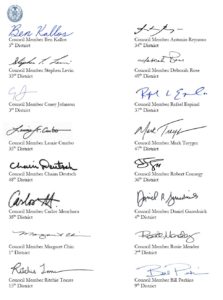 Ben Kallos
Council Member Ben Kallos
5th District
Council Member Antonio Reynoso
34th District
Council Member Stephen Levin
33rd District
Council Member Deborah Rose
49th District
Council Member Corey Johnson
3rd District
Council Member Rafael Espinal
37th District
Council Member Laurie Cumbo
35th District
Mark Treyger
Council Member Mark Treyger
47th District
Chaim Deutsch
Council Member Chaim Deutsch
48th District
Council Member Robert Cornegy
36th District
Council Member Carlos Menchaca
38th District
Council Member Daniel Garodnick
4th District
Council Member Margaret Chin
1st District
Council Member Rosie Mendez
2nd District
Ritchie Torres
Council Member Ritchie Torres
15th District
Council Member Bill Perkins
9th District